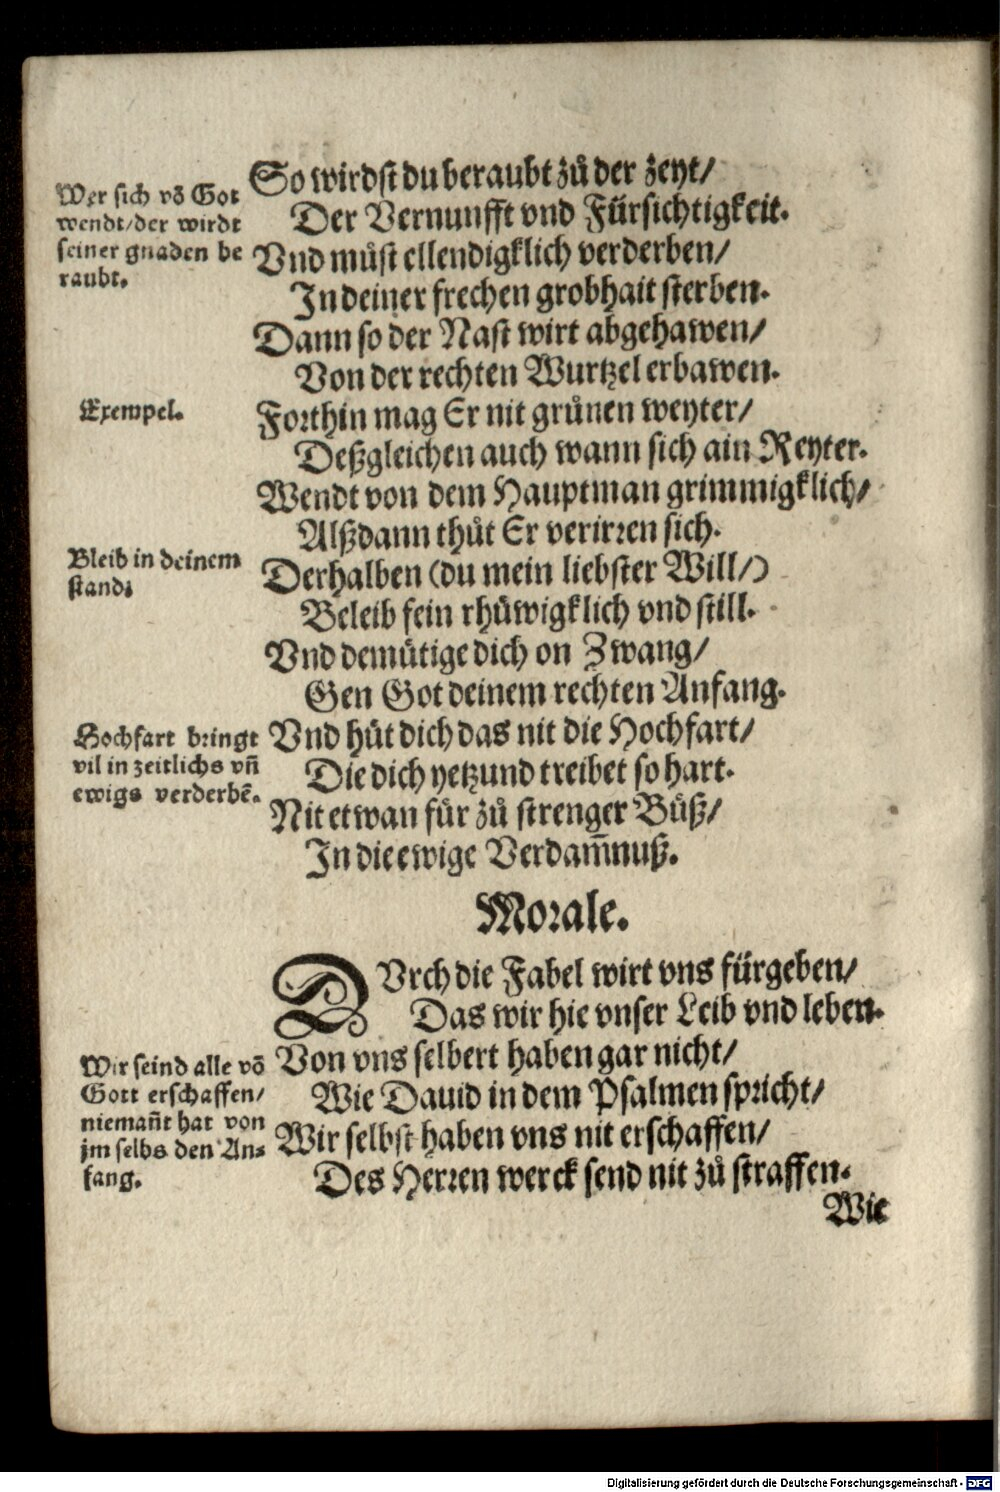 So wirdst du beraubt zuͦ der zeyt/
Der Vernunfft vnd Fürsichtigkeit.
Wer sich võ Got
wendt/der wirdt
seiner gnaden be
raubt.
Vnd muͦst ellendigklich verderben/
In deiner frechen grobhait sterben.
Dann so der Nast wirt abgehawen/
Von der rechten Wurtzel erbawen.
Exempel.
Forthin mag Er nit gruͤnen weyter/
Deßgleichen auch wann sich ain Reyter.
Wendt von dem Hauptman grimmigklich/
Alßdann thuͦt Er verirren sich.
Bleib in deinem
stand.
Derhalben (du mein liebster Will/)
Beleib fein rhuͤwigklich vnd still.
Vnd demuͤtige dich on Zwang/
Gen Got deinem rechten Anfang.
Hochfart bringt
vil in zeitlichs vñ
ewigs verderbẽ.
Vnd huͤt dich das nit die Hochfart/
Die dich yetzund treibet so hart.
Nit etwan für zuͦ strenger Buͦß/
In die ewige Verdam̃nuß.
Morale.
DVrch die Fabel wirt vns fürgeben/
Das wir hie vnser Leib vnd leben.
Wir seind alle võ
Gott erschaffen/
niemañt hat von
jm selbs den An-
fang.
Von vns selbert haben gar nicht/
Wie Dauid in dem Psalmen spricht/
Wir selbst haben vns nit erschaffen/
Des Herren werck send nit zuͦ straffen.
Wie
Digitalisierung gefördert durch die Deutsche Forschungsgemeinschaft - DFG